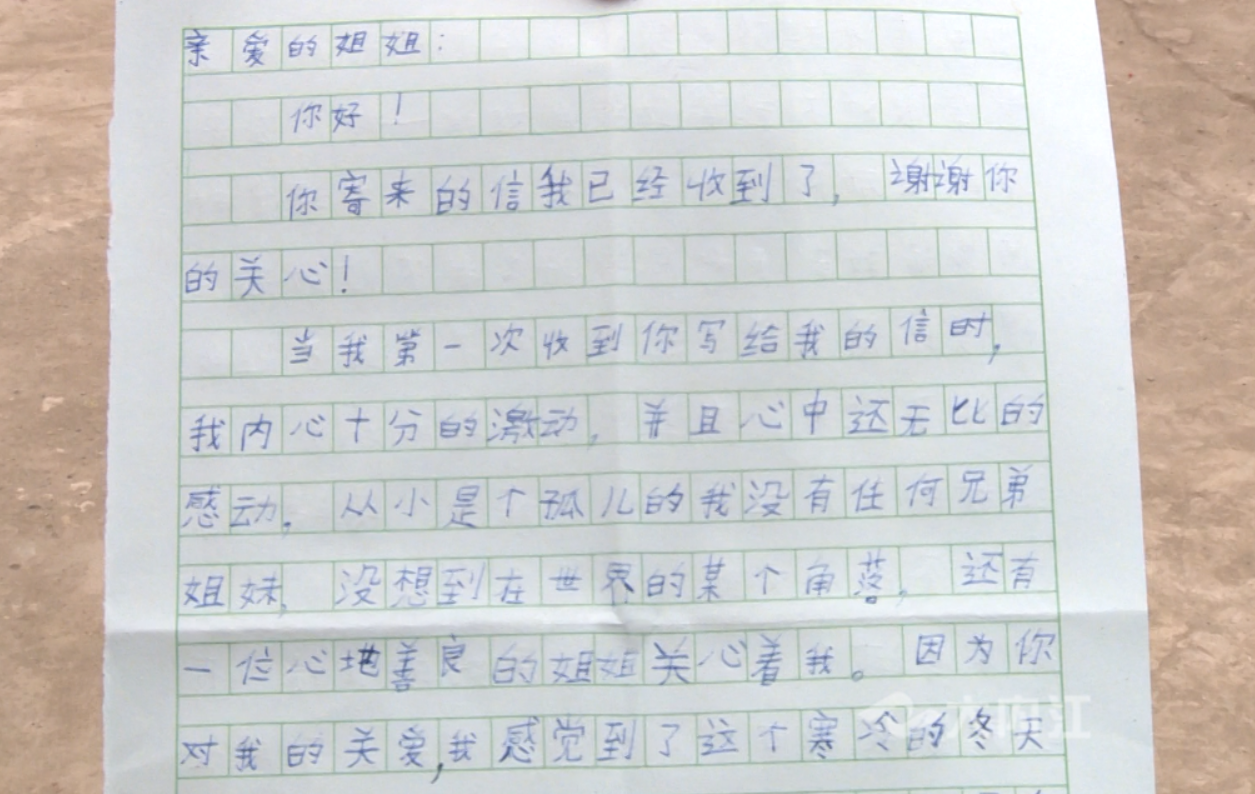 亲爱的姐姐:
你好!
你寄来的信我已经收到了,谢谢你
的关心!
当我第一次收到你写给我的信时,
我内心十分的激动,并且心中还无比的
感动。从小是个孤儿的我没有任何兄弟
姐妹,没想到在世界的某个角落。还有
一位心地善良的姐姐关心着我。因为你
对我的关爱,我感觉到了这个寒冷的冬天